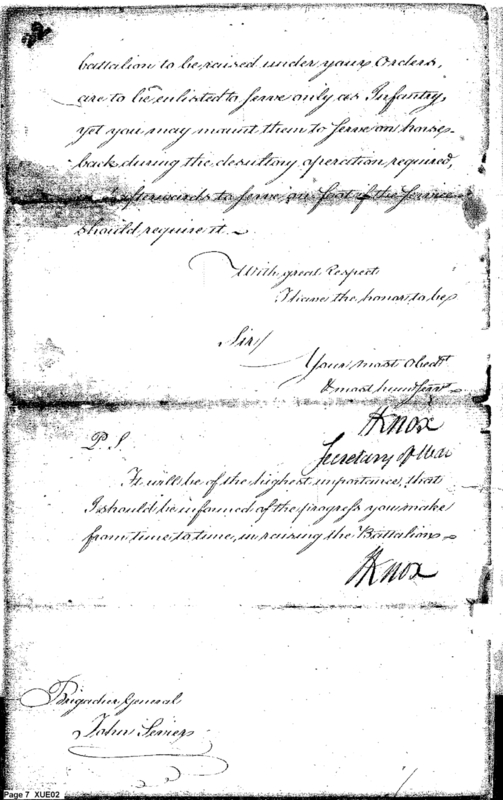 battalion to be raised under your Orders,
are to be enlisted to serve only as Infantry,
yet you may mount them to serve on horse-
back during the desultory operation required,
afterwards to serve on foot if the service
should require it. ~
With great Respect
I have the honor to be
Sir/
Your most Obedt
& most hum Servt
HKnox
Secretary of War
P. S.
It will be of the highest importance, that
I should be informed of the progress you make
from time to time, in raising the Battalion ~
HKnox
Brigadier General
John Sevier
Page 7 XUE02